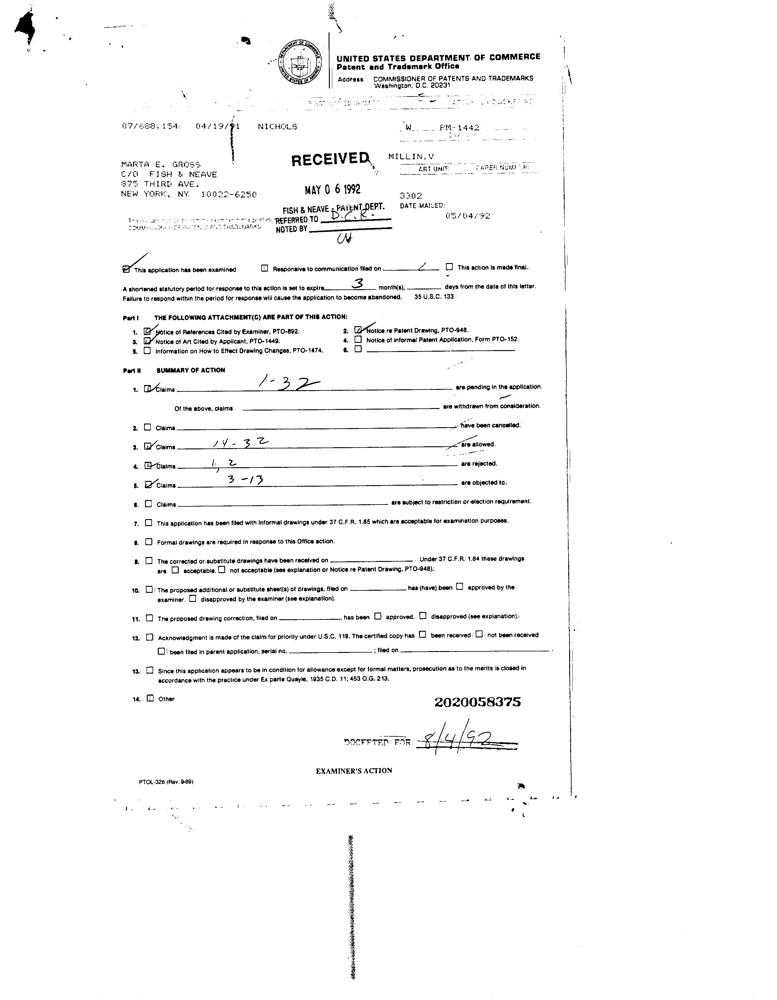 UNITED STATES DEPARTMENT OF COMMERCE
Patent and Trademark Office
Address : COMMISSIONER OF PATENTS AND TRADEMARKS
Washington, D.C. 20231
07/688,154 04/19/91 NICHOLS W PM-1442
MILLIN, V
RECEIVED
ART UNIT PAPER NUMBER
MARTA E. GROSS
C/O FISH & NEAVE
875 THIRD AVE.
NEW YORK, NY 10022-6250
MAY 06 1992
3302
FISH & NEAVE - PATENT DEPT.
DATE MAILED:
05/04/92
REFERRED TO D.C.R.
COMMISSIONER OF PATENTS AND TRADEMARKS
NOTED BY
☑ This application has been examined ☐ Responsive to communication filed on ☐ This action is made final.
A shortened statutory period for response to this action is set to expire 3 month(s), days from the date of this letter.
Failure to respond within the period for response will cause the application to become abandoned. 35 U.S.C. 133
Part I THE FOLLOWING ATTACHMENT(S) ARE PART OF THIS ACTION:
1. ☑ Notice of References Cited by Examiner, PTO-892. 2. ☑ Notice re Patent Drawing, PTO-948.
3. ☑ Notice of Art Cited by Applicant, PTO-1449. 4. ☐ Notice of Informal Patent Application, Form PTO-152.
5. ☐ Information on How to Effect Drawing Changes, PTO-1474. 6. ☐
Part II SUMMARY OF ACTION
1. ☑ Claims 1-32 are pending in the application.
Of the above, claims are withdrawn from consideration.
2. ☐ Claims have been cancelled.
3. ☑ Claims 14-32 are allowed.
4. ☑ Claims 1, 2 are rejected.
5. ☑ Claims 3-13 are objected to.
6. ☐ Claims are subject to restriction or election requirement.
7. ☐ This application has been filed with informal drawings under 37 C.F.R. 1.85 which are acceptable for examination purposes.
8. ☐ Formal drawings are required in response to this Office action.
9. ☐ The corrected or substitute drawings have been received on . Under 37 C.F.R. 1.84 these drawings
are ☐ acceptable. ☐ not acceptable (see explanation or Notice re Patent Drawing, PTO-948).
10. ☐ The proposed additional or substitute sheet(s) of drawings, filed on has (have) been ☐ approved by the
examiner. ☐ disapproved by the examiner (see explanation).
11. ☐ The proposed drawing correction, filed on , has been ☐ approved. ☐ disapproved (see explanation).
12. ☐ Acknowledgment is made of the claim for priority under U.S.C. 119. The certified copy has ☐ been received ☐ not been received
☐ been filed in parent application, serial no. ; filed on
13. ☐ Since this application appears to be in condition for allowance except for formal matters, prosecution as to the merits is closed in
accordance with the practice under Ex parte Quayle, 1935 C.D. 11; 453 O.G. 213.
14. ☐ Other
2020058375
DOCKETED FOR 8/4/92
EXAMINER'S ACTION
PTOL-326 (Rev. 9-89)